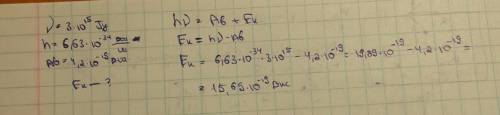 ν = 3·10¹⁵ Гц
h = 6,63·10⁻³⁴
Aв = 4,2·10⁻¹⁹ Дж
Eк — ?
hν = Aв + Eк
Eк = hν - Aв
Eк = 6,63·10⁻³⁴·3·10¹⁵ - 4,2·10⁻¹⁹ = 19,89·10⁻¹⁹ - 4,2·10⁻¹⁹ =
= 15,69·10⁻¹⁹ Дж